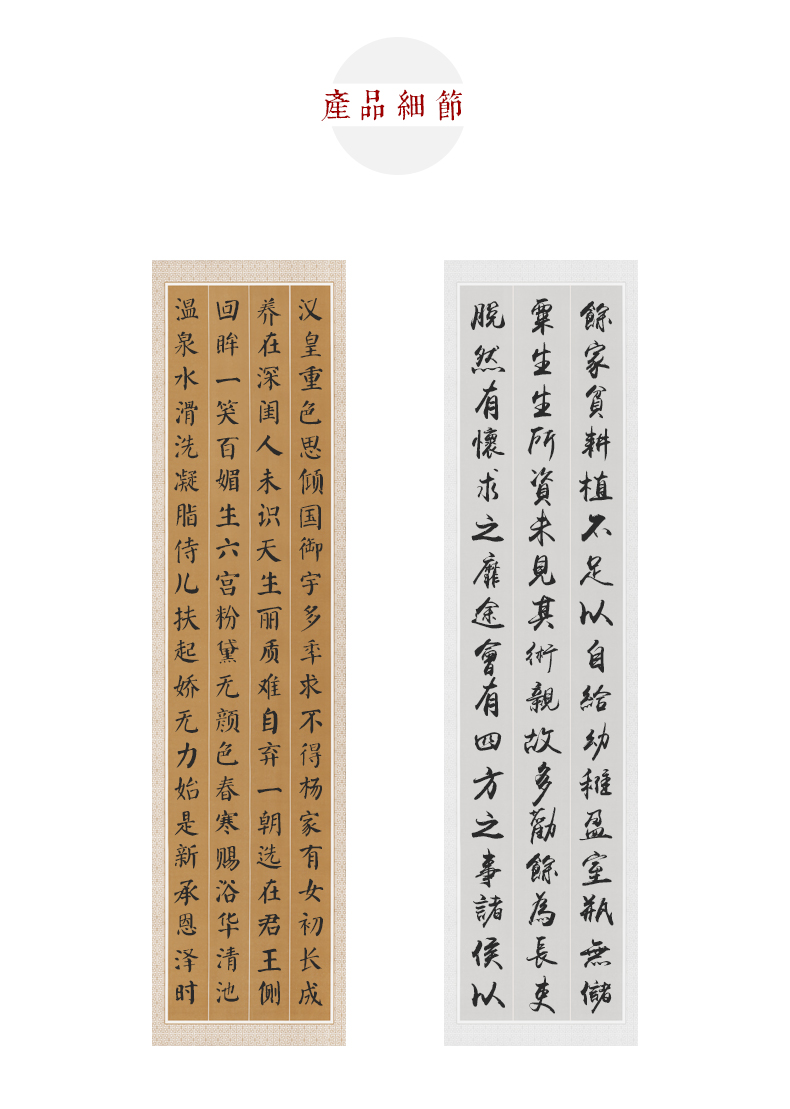 產品細節
汉皇重色思倾国御宇多年求不得杨家有女初长成
养在深闺人未识天生丽质难自弃一朝选在君王侧
回眸一笑百媚生六宫粉黛无颜色春寒赐浴华清池
温泉水滑洗凝脂侍儿扶起娇无力始是新承恩泽时
餘家貧耕植不足以自給幼稚盈室瓶無儲
粟生生所資未見其術親故多勸餘為長吏
脫然有懷求之靡途會有四方之事諸侯以